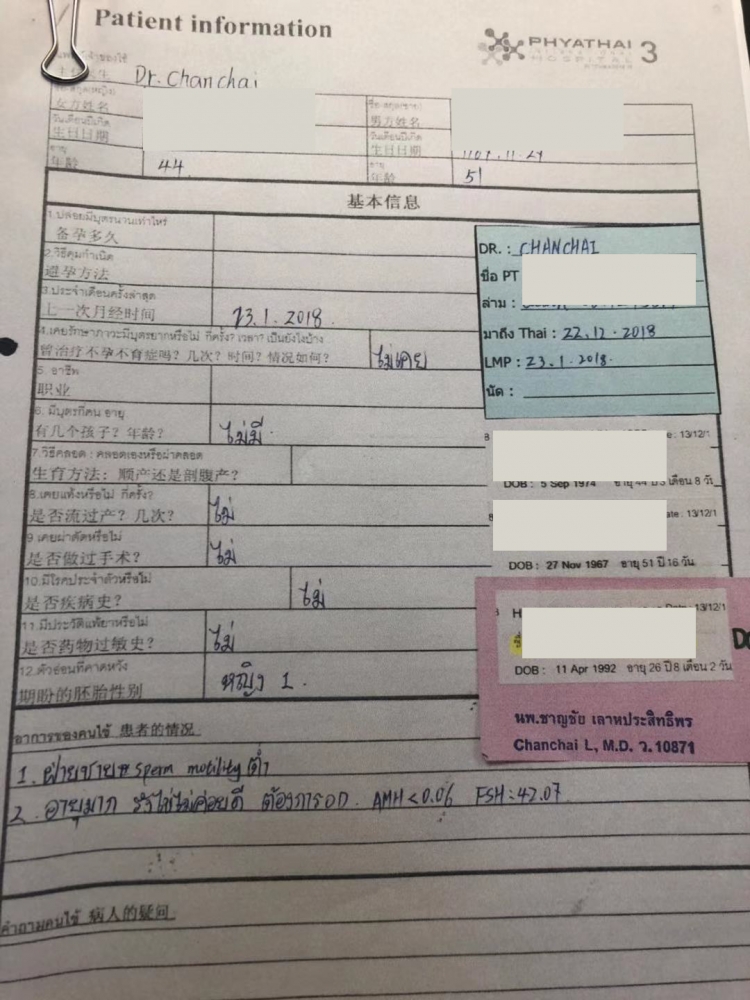 Patient information
PHYATHAI 3
HOSPITAL
Dr. Chanchai
ชื่อ-สกุล(หญิง)
女方姓名
ชื่อ-สกุล(ชาย)
男方姓名
วันเดือนปีเกิด
生日日期
วันเดือนปีเกิด
生日日期
อายุ
年龄 44
อายุ
年龄 51
基本信息
1.ปล่อยมีบุตรนานเท่าไหร่
备孕多久
2.วิธีคุมกำเนิด
避孕方法
3.ประจำเดือนครั้งล่าสุด
上一次月经时间 23.1.2018.
4.เคยรักษาภาวะมีบุตรยากหรือไม่ กี่ครั้ง? เวลา? เป็นยังไงบ้าง
曾治疗不孕不育症吗? 几次? 时间? 情况如何? ไม่เคย
5. อาชีพ
职业
6. มีบุตรกี่คน อายุ
有几个孩子? 年龄? ไม่มี
7.วิธีคลอด : คลอดเองหรือผ่าคลอด
生育方法: 顺产还是剖腹产?
8.เคยแท้งหรือไม่ กี่ครั้ง?
是否流过产? 几次? ไม่
9 เคยผ่าตัดหรือไม่
是否做过手术? ไม่
10.มีโรคประจำตัวหรือไม่
是否疾病史? ไม่
11.มีประวัติแพ้ยาหรือไม่
是否药物过敏史? ไม่
12.ตัวอ่อนที่คาดหวัง
期盼的胚胎性别 หญิง 1.
DR. : CHANCHAI
ชื่อ PT
ล่าม :
มาถึง Thai : 22.12.2018
LMP : 23.1.2018.
นัด :
: 13/12/1
DOB : 5 Sep 1974 อายุ 44 ปี 3 เดือน 8 วัน
ate : 13/12/1
DOB : 27 Nov 1967 อายุ 51 ปี 16 วัน
Date : 13/12/1
DOB : 11 Apr 1992 อายุ 26 ปี 8 เดือน 2 วัน
นพ.ชาญชัย เลาหประสิทธิพร
Chanchai L, M.D. ว.10871
อาการของคนไข้ 患者的情况
1. ฝ่ายชาย sperm motility ต่ำ
2. อายุมาก รังไข่ไม่ค่อยดี ต้องการ OD. AMH<0.06 FSH:42.07.
คำถามคนไข้ 病人的疑问